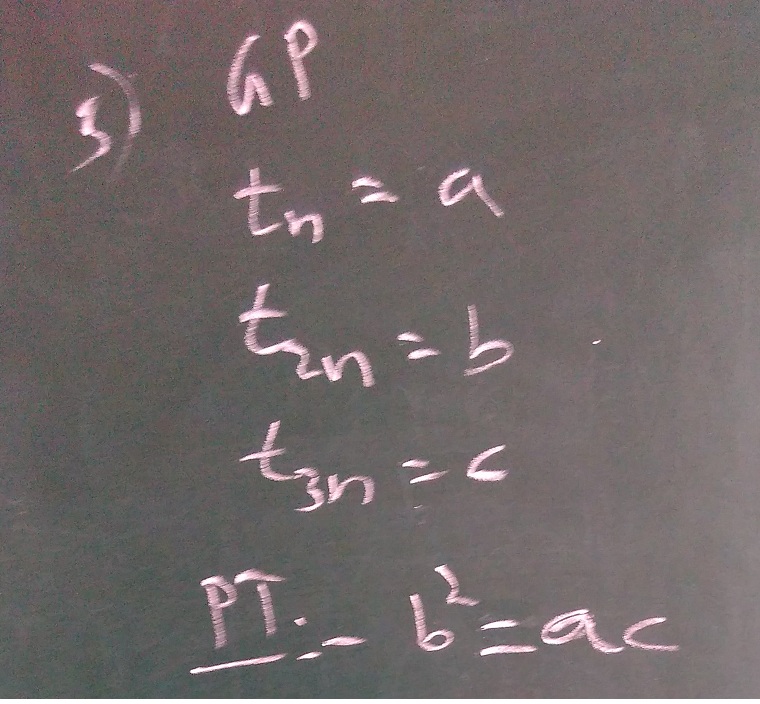 5) GP
tn = a
t2n = b
t3n = c
PT:- b² = ac